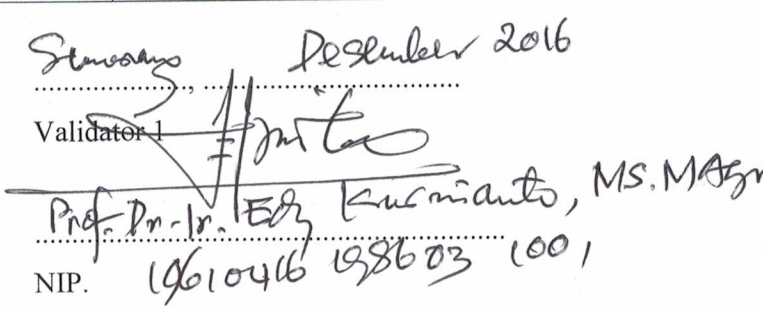 Semarang, Desember 2016
Validator 1
Prof. Dr. Ir. Edy Kurnianto, MS. MAgr
NIP. 19610416 198603 1001